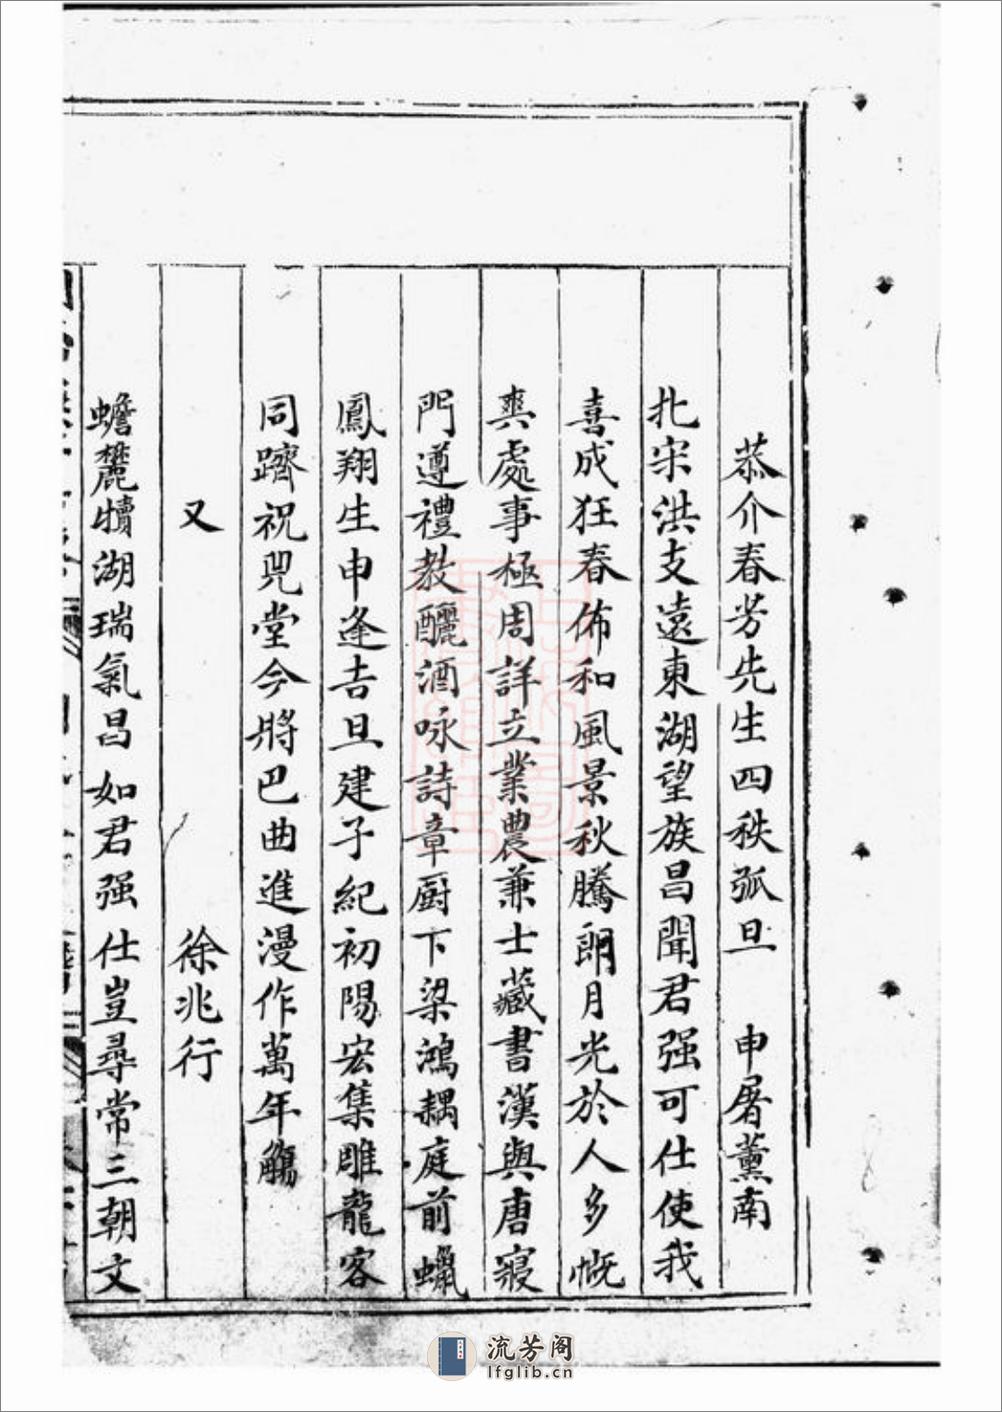 恭介春芳先生四秩弧旦　申屠薰南
北宋洪支遠東湖望族昌聞君强可仕使我
喜成狂春佈和風景秋騰朗月光於人多慨
爽處事極周詳立業農兼士藏書漢與唐寢
門遵禮教釃酒咏詩章廚下梁鴻耦庭前蠟
鳳翔生申逢吉旦建子紀初陽宏集雕龍客
同躋祝兕堂今將巴曲進漫作萬年觴
又　徐兆行
蟾麓犢湖瑞氣昌如君强仕豈尋常三朝文
流芳阁
lfglib.cn